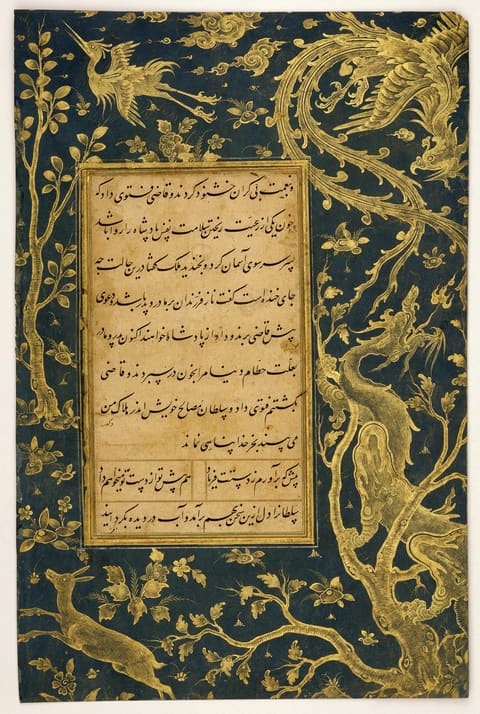 و نعمت بی کران خشنود کردند و قاضی فتوی داد که
خون یکی از رعیت ریختن سلامت نفس پادشاه را روا باشد
پسر سر سوی آسمان کرد و بخندید ملک کفتا درین حالت چه
جای خنده است کفت ناز فرزندان بر مادر و پدر باشد و دعوی
پیش قاضی برند و داد از پادشاه خواهند اکنون پدر و مادر
بعلت حطام دنیا مرا بخون در سپردند و قاضی
بکشتنم فتوی داد و سلطان مصالح خویش اندر هلاک من
می بیند بجز خدا پناهی نماند
پیش که برآورم ز دستت فریاد هم پیش تو از دست تو میخواهم داد
سلطانرا دل ازین سخن بهم برآمد و آب در دیده بکردانید